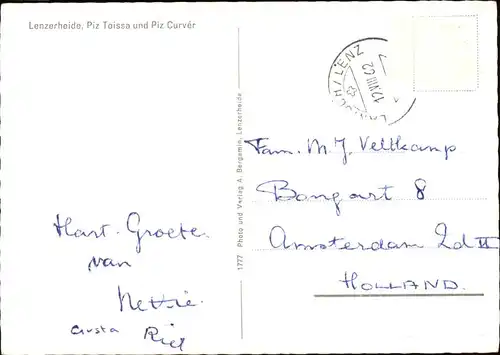 Lenzerheide, Piz Toissa und Piz Curvér
LANTSCH/LENZ
12.VIII.62
1777 Photo und Verlag A. Bergamin, Lenzerheide
Fam. M. J. Veltkamp
Bongart 8
Amsterdam 2d II
HOLLAND.
Hart. Groete.
van
Nettie.
Riel